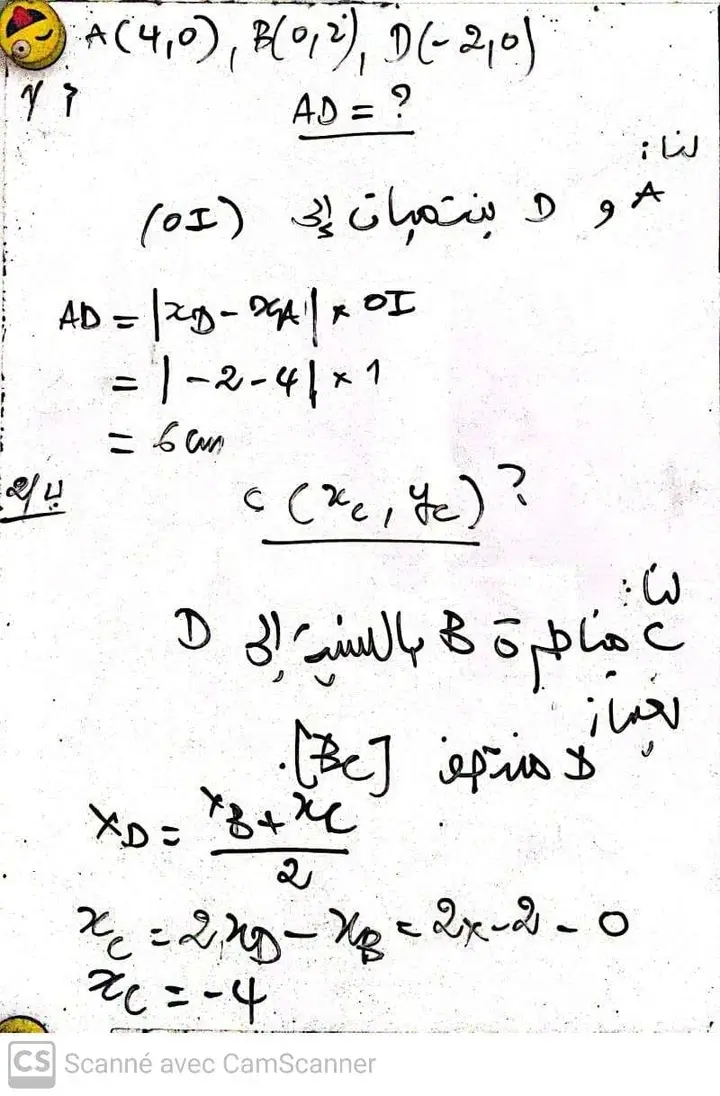 A(4,0), B(0,2), D(-2,0)
AD = ?
لنا :
A و D ينتميان إلى (OI)
AD = |xD - xA| × OI
= |-2-4| × 1
= 6 cm
2/ ب
C (xc, yc) ?
لنا :
C مناظرة B بالنسبة إلى D
يعني :
D منتصف [BC].
xD = (xB + xC) / 2
xC = 2xD - xB = 2x-2 - 0
xC = -4
CS Scanné avec CamScanner